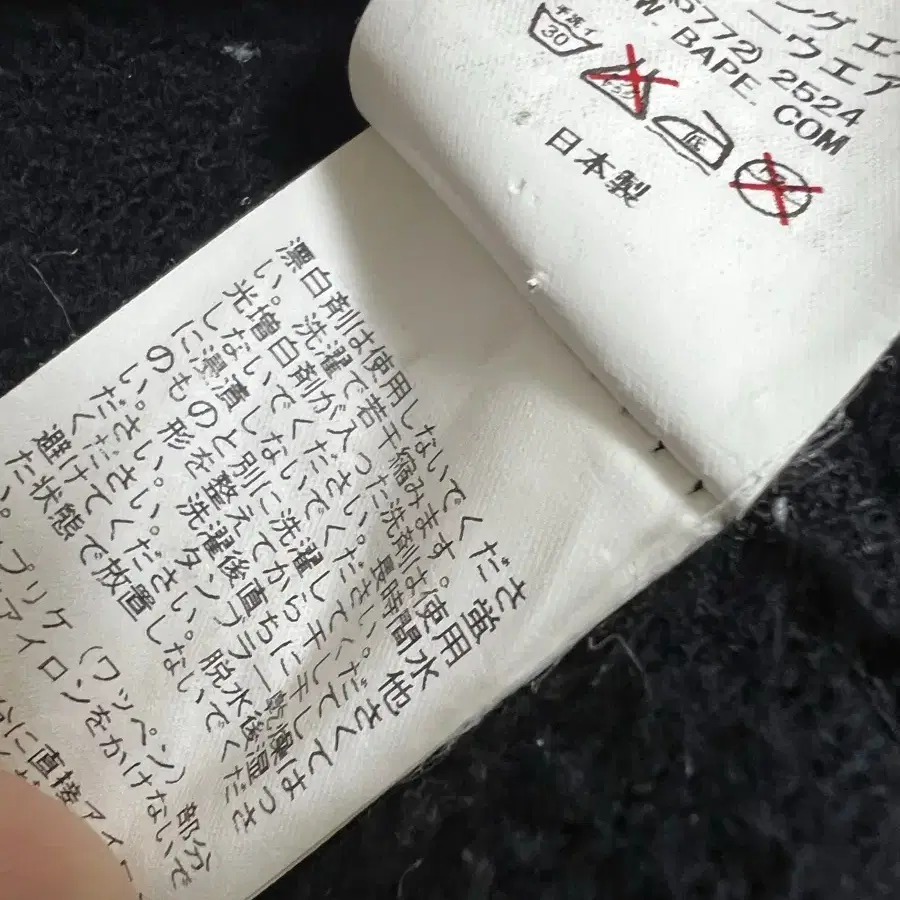 ングエ
ーウエア
5772) 2524
W. BAPE. COM
手洗イ
30
低
日本製
漂白剤は使用しないでくださ
い。 洗濯で若干縮みます。蛍
光増白剤が入った洗剤は使用
しないでください。長時間水
に浸漬しないでください。他
のものと別に洗濯してくださ
い。 形を整えてから干してく
ださい。洗濯後直ちに干して
ください。タンブラー乾燥は
避けてください。 脱水後湿っ
た状態で放置しないでくださ
い。
プリケ (ワッペン) 部分
に直接アイ
アイロンをかけないで